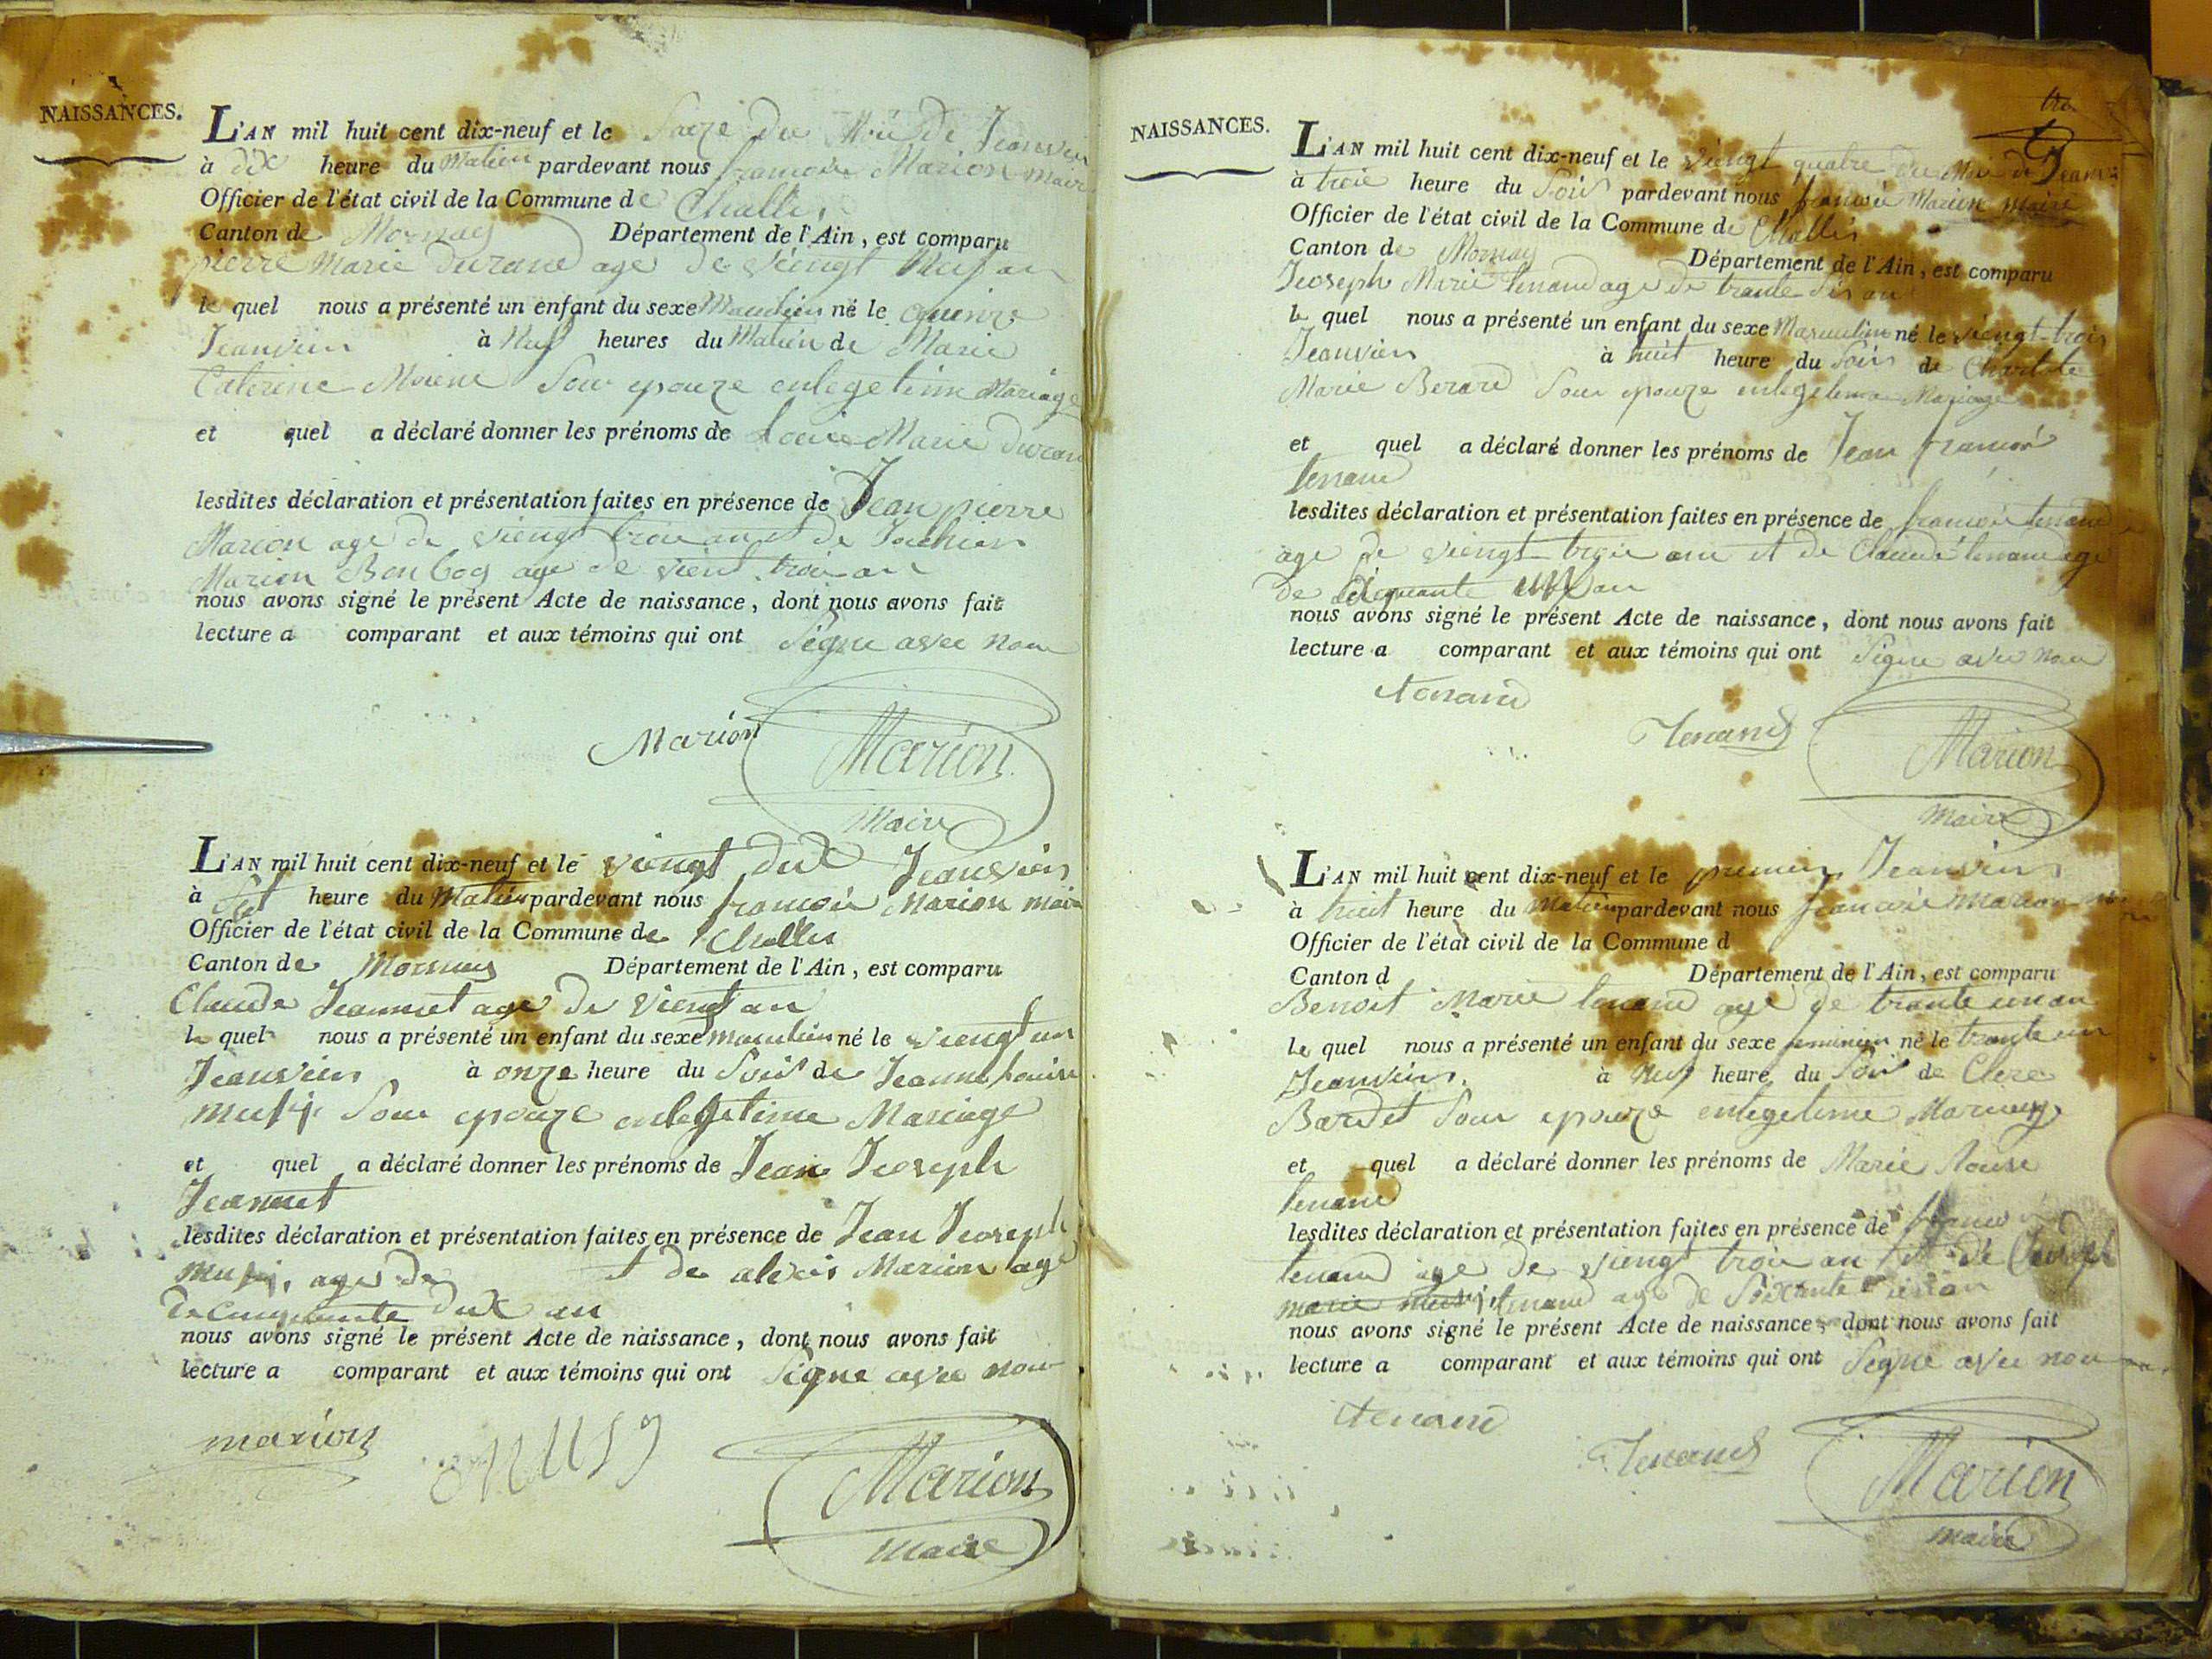 NAISSANCES.
L'AN mil huit cent dix-neuf et le Saeze du Mois de Jeanvier
à dix heure du Matien pardevant nous francois Marion maire
Officier de l'état civil de la Commune de Challes
Canton de Mornay Département de l'Ain, est comparu
pierre Marie durand age de vieengt Neuf an
le quel nous a présenté un enfant du sexe né le
Jeanvien à Neuf heures du Matien de Marie
Caterine Morene Son epouze enlegetime Mariage
et quel a déclaré donner les prénoms de Louis Marie duran
lesdites déclaration et présentation faites en présence de Jean pierre
Marion age de viengt trois an et de Joachim
Marion age de vient trois an
nous avons signé le présent Acte de naissance, dont nous avons fait
lecture a comparant et aux témoins qui ont Signe avec nou
Marion Marion
Maire
L'AN mil huit cent dix-neuf et le viengt dux Jeanvien
à heure du Matien pardevant nous francois Marion maire
Officier de l'état civil de la Commune de Challes
Canton de Mornay Département de l'Ain, est comparu
Claude Jeannet age de viengt an
le quel nous a présenté un enfant du sexe masculien né le viengt un
Jeanvien à onze heure du Soir de Jeanne Louise
musy Son epouze enlegetime Mariage
et quel a déclaré donner les prénoms de Jean Jeoseph
Jeannet
lesdites déclaration et présentation faites en présence de Jean Jeoseph
musy, age de et de alexis Marion age
de Cinquante dux an
nous avons signé le présent Acte de naissance, dont nous avons fait
lecture a comparant et aux témoins qui ont Signe avec nou
marion MUSY Marion
Maire
NAISSANCES.
L'AN mil huit cent dix-neuf et le viengt quatre du Moi de Jeanvi
à trois heure du Soir pardevant nous francois Marion maire
Officier de l'état civil de la Commune de Challes
Canton de Mornay Département de l'Ain, est comparu
Jeoseph Marie tenand age de trante Sis an
le quel nous a présenté un enfant du sexe Masculien né le viengt-trois
Jeanvien à huit heure du Soir de Charlote
Marie Berard Son epouze enlegetime Mariage
et quel a déclaré donner les prénoms de Jean francoi
tenand
lesdites déclaration et présentation faites en présence de francois tenand
age de viengt-trois an et de Claude tenand age
de an
nous avons signé le présent Acte de naissance, dont nous avons fait
lecture a comparant et aux témoins qui ont Signe avec nou
tenand Tenand Marion
Maire
L'AN mil huit cent dix-neuf et le premier Jeanvien
à huit heure du Matien pardevant nous francois marion
Officier de l'état civil de la Commune d
Canton d Département de l'Ain, est comparu
Benoit Marie tenand age de trante un an
le quel nous a présenté un enfant du sexe feminien né le trante un
Jeanvien à Neuf heure du Soir de Clere
Bardet Son epouze enlegetime Mariage
et quel a déclaré donner les prénoms de Marie Rouse
tenand
lesdites déclaration et présentation faites en présence de
tenand age de viengt trois an et de
marie musy tenand age de Soixante an
nous avons signé le présent Acte de naissance, dont nous avons fait
lecture a comparant et aux témoins qui ont Signe avec nou
tenand Tenand Marion
maire